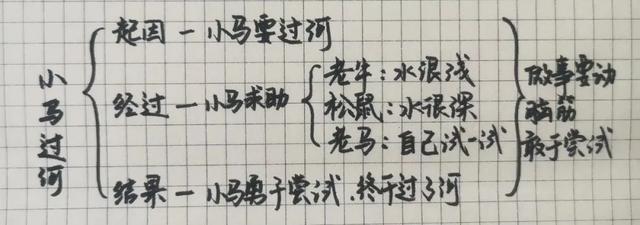 小马过河
起因一小马要过河
经过一小马求助
老牛：水很浅
松鼠：水很深
老马：自己试一试
结果一小马勇于尝试.终于过了河
做事要动
脑筋
敢于尝试